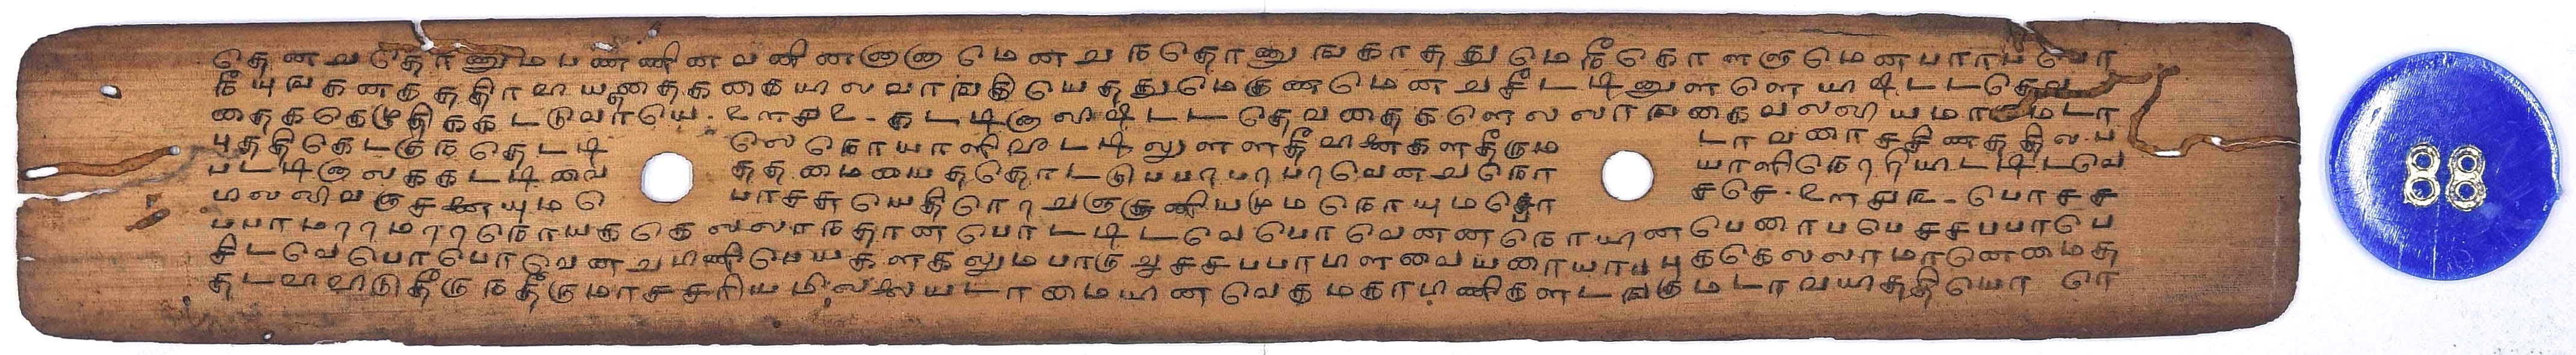 தென வதொணும பணணின வனின னுரு மென வ நதொணு ஙகாதது மெ நீகொளளுமென பாரபபொ
நீயுஙகனகுததிரவயதைககையிலவாஙகி யெததுமெகுணமென வசீடடினுளளெ யிஷடடதெவ
தைககெழுதிககடடுவாயெ. உளசுஉ - கடடினுலிஷடட தெவதைகளெலலாஙகைவலலியமாமெடா
புததிகெடகுநகெடடி லெ நொயாளிவிடடிலுளளதீவினைகளதீரும டாவரைசசிணததில.ப
படடினுலககடடிவை தத மையைததொடடு பபரபரபரவெனவநொ யாளிநெரரியிடடிடவெ
மலலிவருசனையுமெ பாசசு யெதிரொரவருகுணியமும நொயுமதொ சசெ. உளசுங - பொசச
பபாமரரமரரநொயககெலலாநதான பொடடிடவெ பொவெனனநொயினபெராபபெசசபபாபெ
சிடவெபொபொவெனவமணிமெயகளகலுமபாருஅசசபபாமளவையரையாயபுககெலலாமானெமைத
தடவிவிடுதீருநதீருமாசசரியமிலலையடாமையின வெகமகாமணிகளடஙகுமடாவயிததியொ ரெ
88